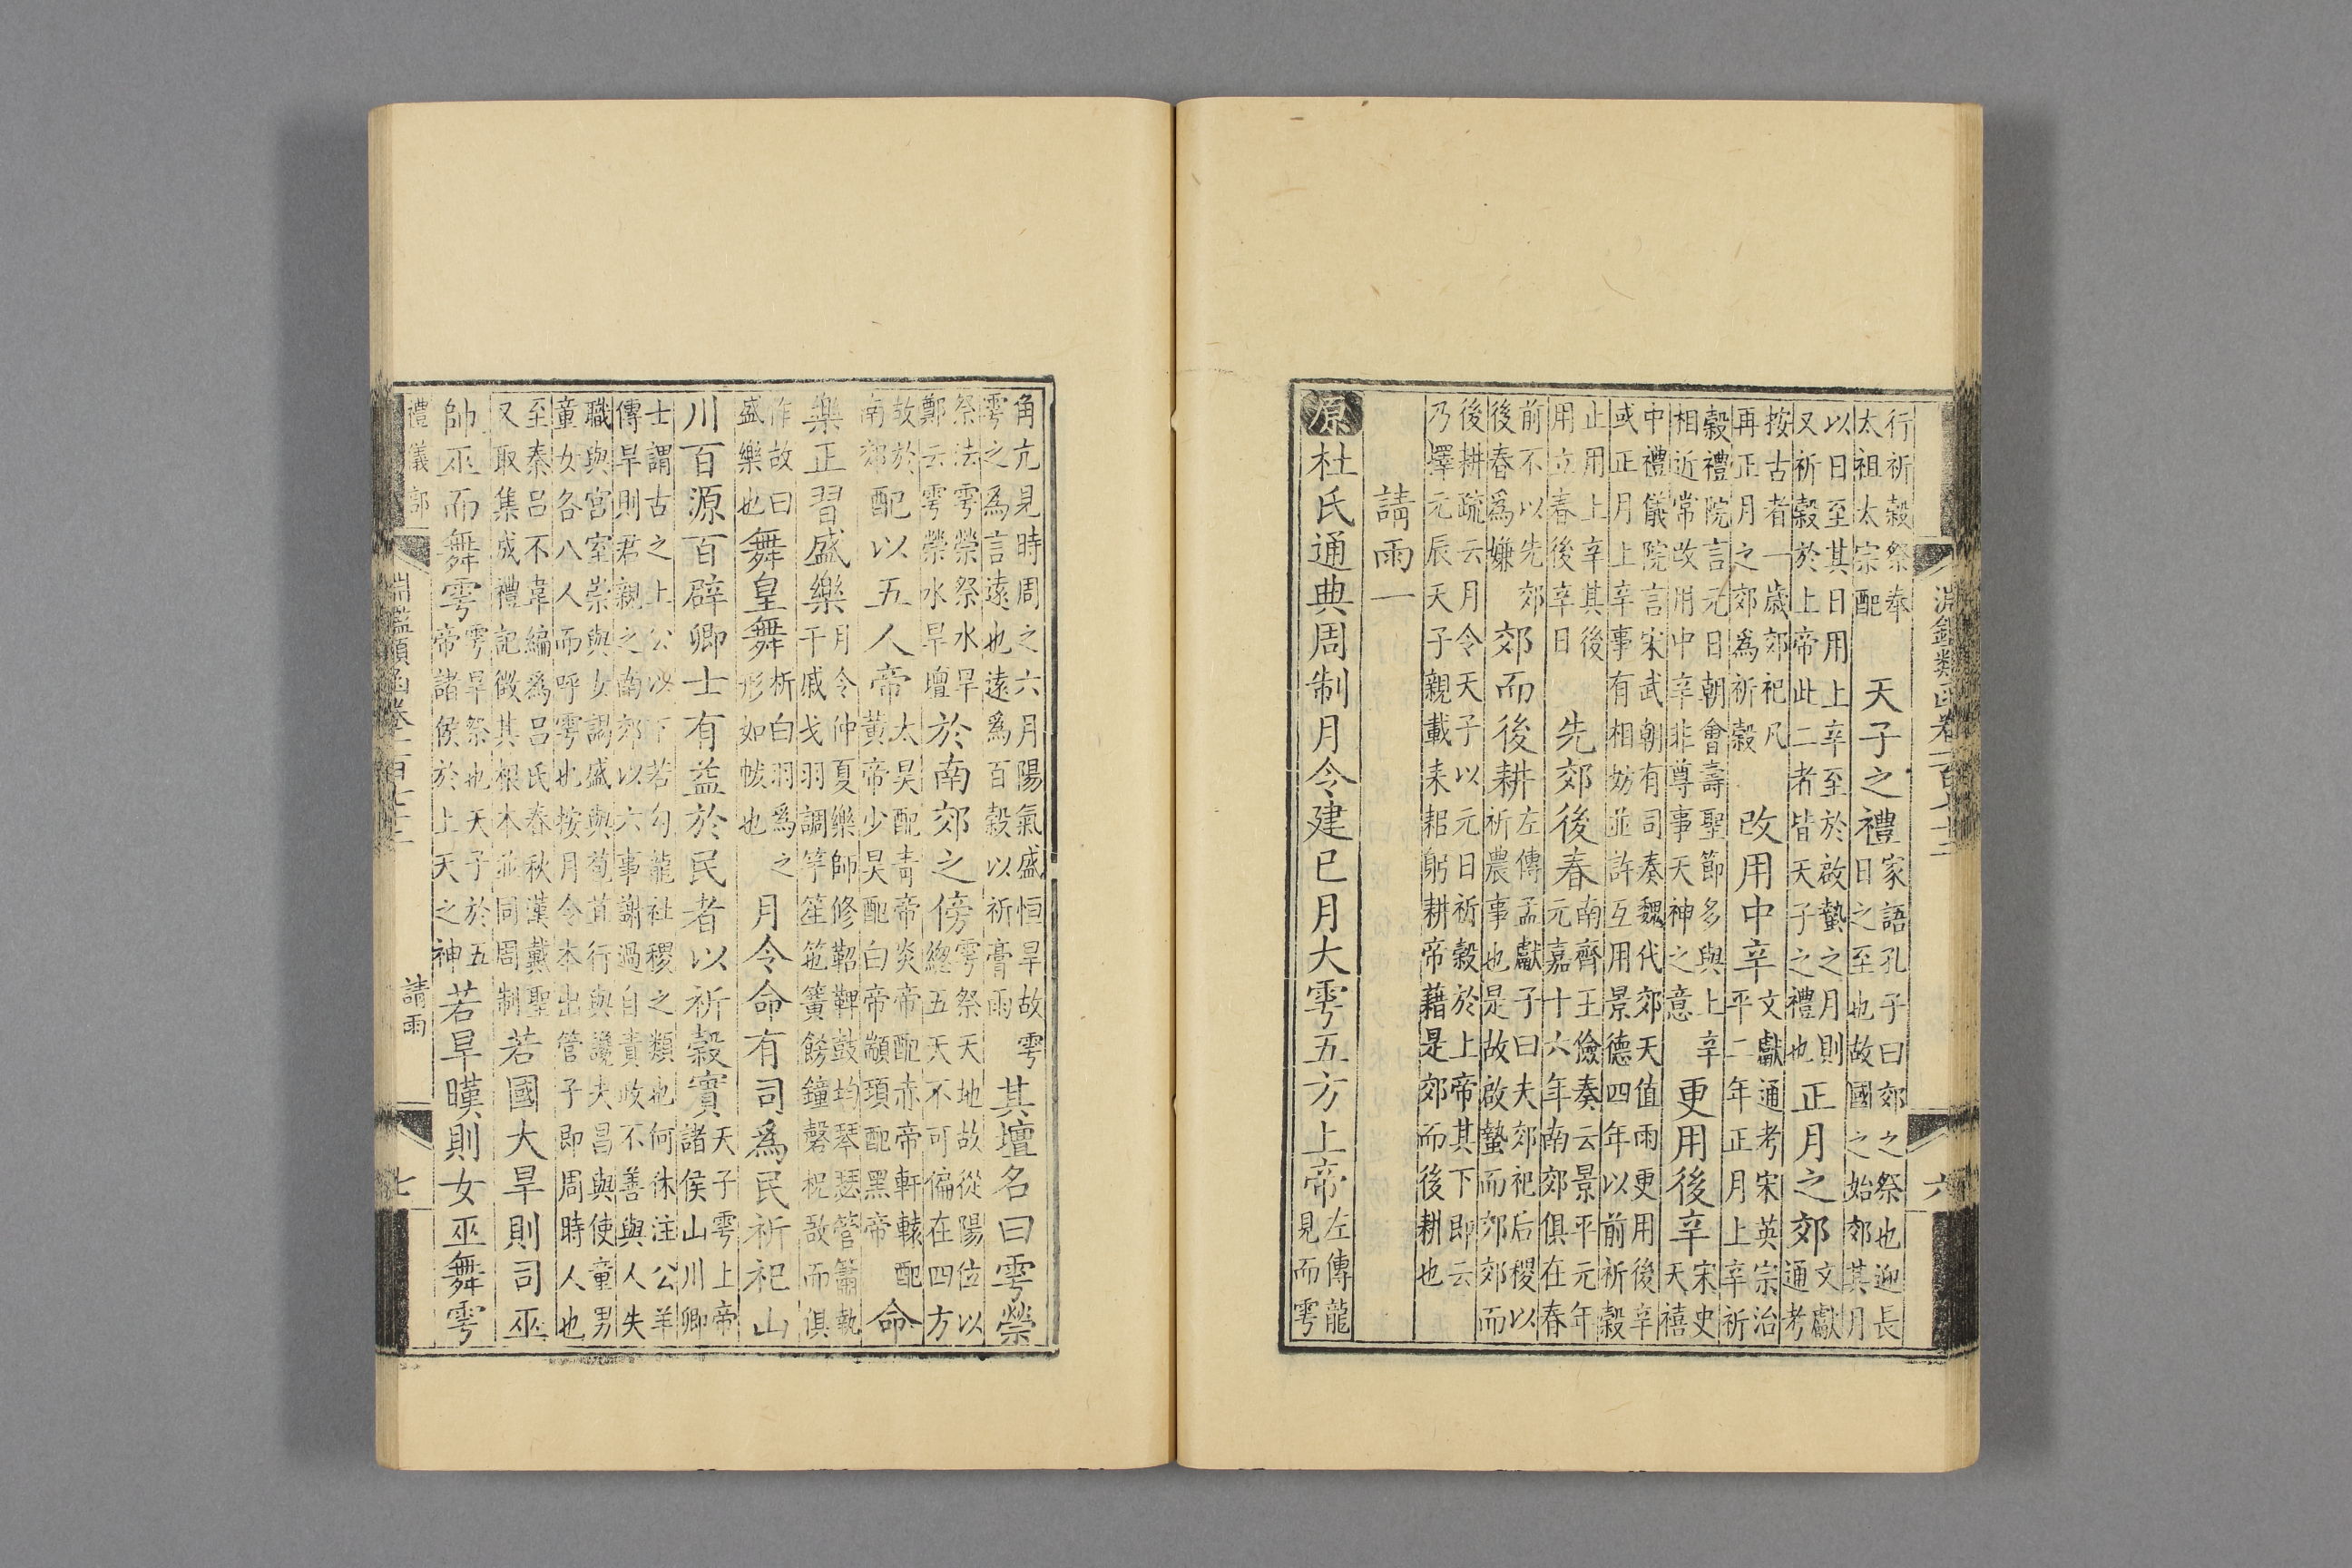 行祈穀祭奉太祖太宗配 天子之禮家語孔子曰郊之祭也迎長日之至也故國之始郊其月
以日至其日用上辛至於啟蟄之月則又祈穀於上帝此二者皆天子之禮也 正月之郊文獻通考
按古者一歲郊祀凡再正月之郊為祈穀 改用中辛文獻通考宋英宗治平二年正月上辛祈
穀禮院言元日朝會壽聖節多與上辛相近常改用中辛非尊事天神之意 更用後辛宋史天禧
中禮儀院言宋武朝有司奏魏代郊天值雨更用後辛或正月上辛事有相妨並許互用景德四年以前祈穀
止用上辛其後用立春後辛日 先郊後春南齊王儉奏云景平元年元嘉十六年南郊俱在春
前不以先郊後春為嫌 郊而後耕左傳孟獻子曰夫郊祀后稷以祈農事也是故啟蟄而郊郊而
後耕疏云月令天子以元日祈穀於上帝其下即云乃擇元辰天子親載耒耜躬耕帝藉是郊而後耕也
請雨一
原杜氏通典周制月令建巳月大雩五方上帝左傳龍見而雩
淵鑑類函卷一百七十二
六
角亢見時周之六月陽氣盛恒旱故雩雩之為言遠也遠為百穀以祈膏雨 其壇名曰雩禜
祭法雩禜祭水旱鄭云雩禜水旱壇 於南郊之傍雩祭天地故從陽位以總五天不可偏在四方
故於南郊 配以五人帝太昊配青帝炎帝配赤帝軒轅配黃帝少昊配白帝顓頊配黑帝 命
樂正習盛樂月令仲夏樂師修鞀鞞鼓均琴瑟管簫執干戚戈羽調竽笙竾簧飭鐘磬柷敔而俱
作故曰盛樂也 舞皇舞析白羽為之形如帗也 月令命有司為民祈祀山
川百源百辟卿士有益於民者以祈穀實天子雩上帝諸侯山川卿
士謂古之上公以下若勾龍社稷之類也何休注公羊傳旱則君親之南郊以六事謝過自責政不善與人失
職與宮室崇與女謁盛與苞苴行與讒夫昌與使童男童女各八人而呼雩也按月令本出管子即周時人也
至秦呂不韋編為呂氏春秋漢戴聖又取集成禮記徵其根本並同周制 若國大旱則司巫
帥巫而舞雩雩旱祭也天子於五帝諸侯於上天之神 若旱暵則女巫舞雩
禮儀部 淵鑑類函卷一百七十二 請雨 七